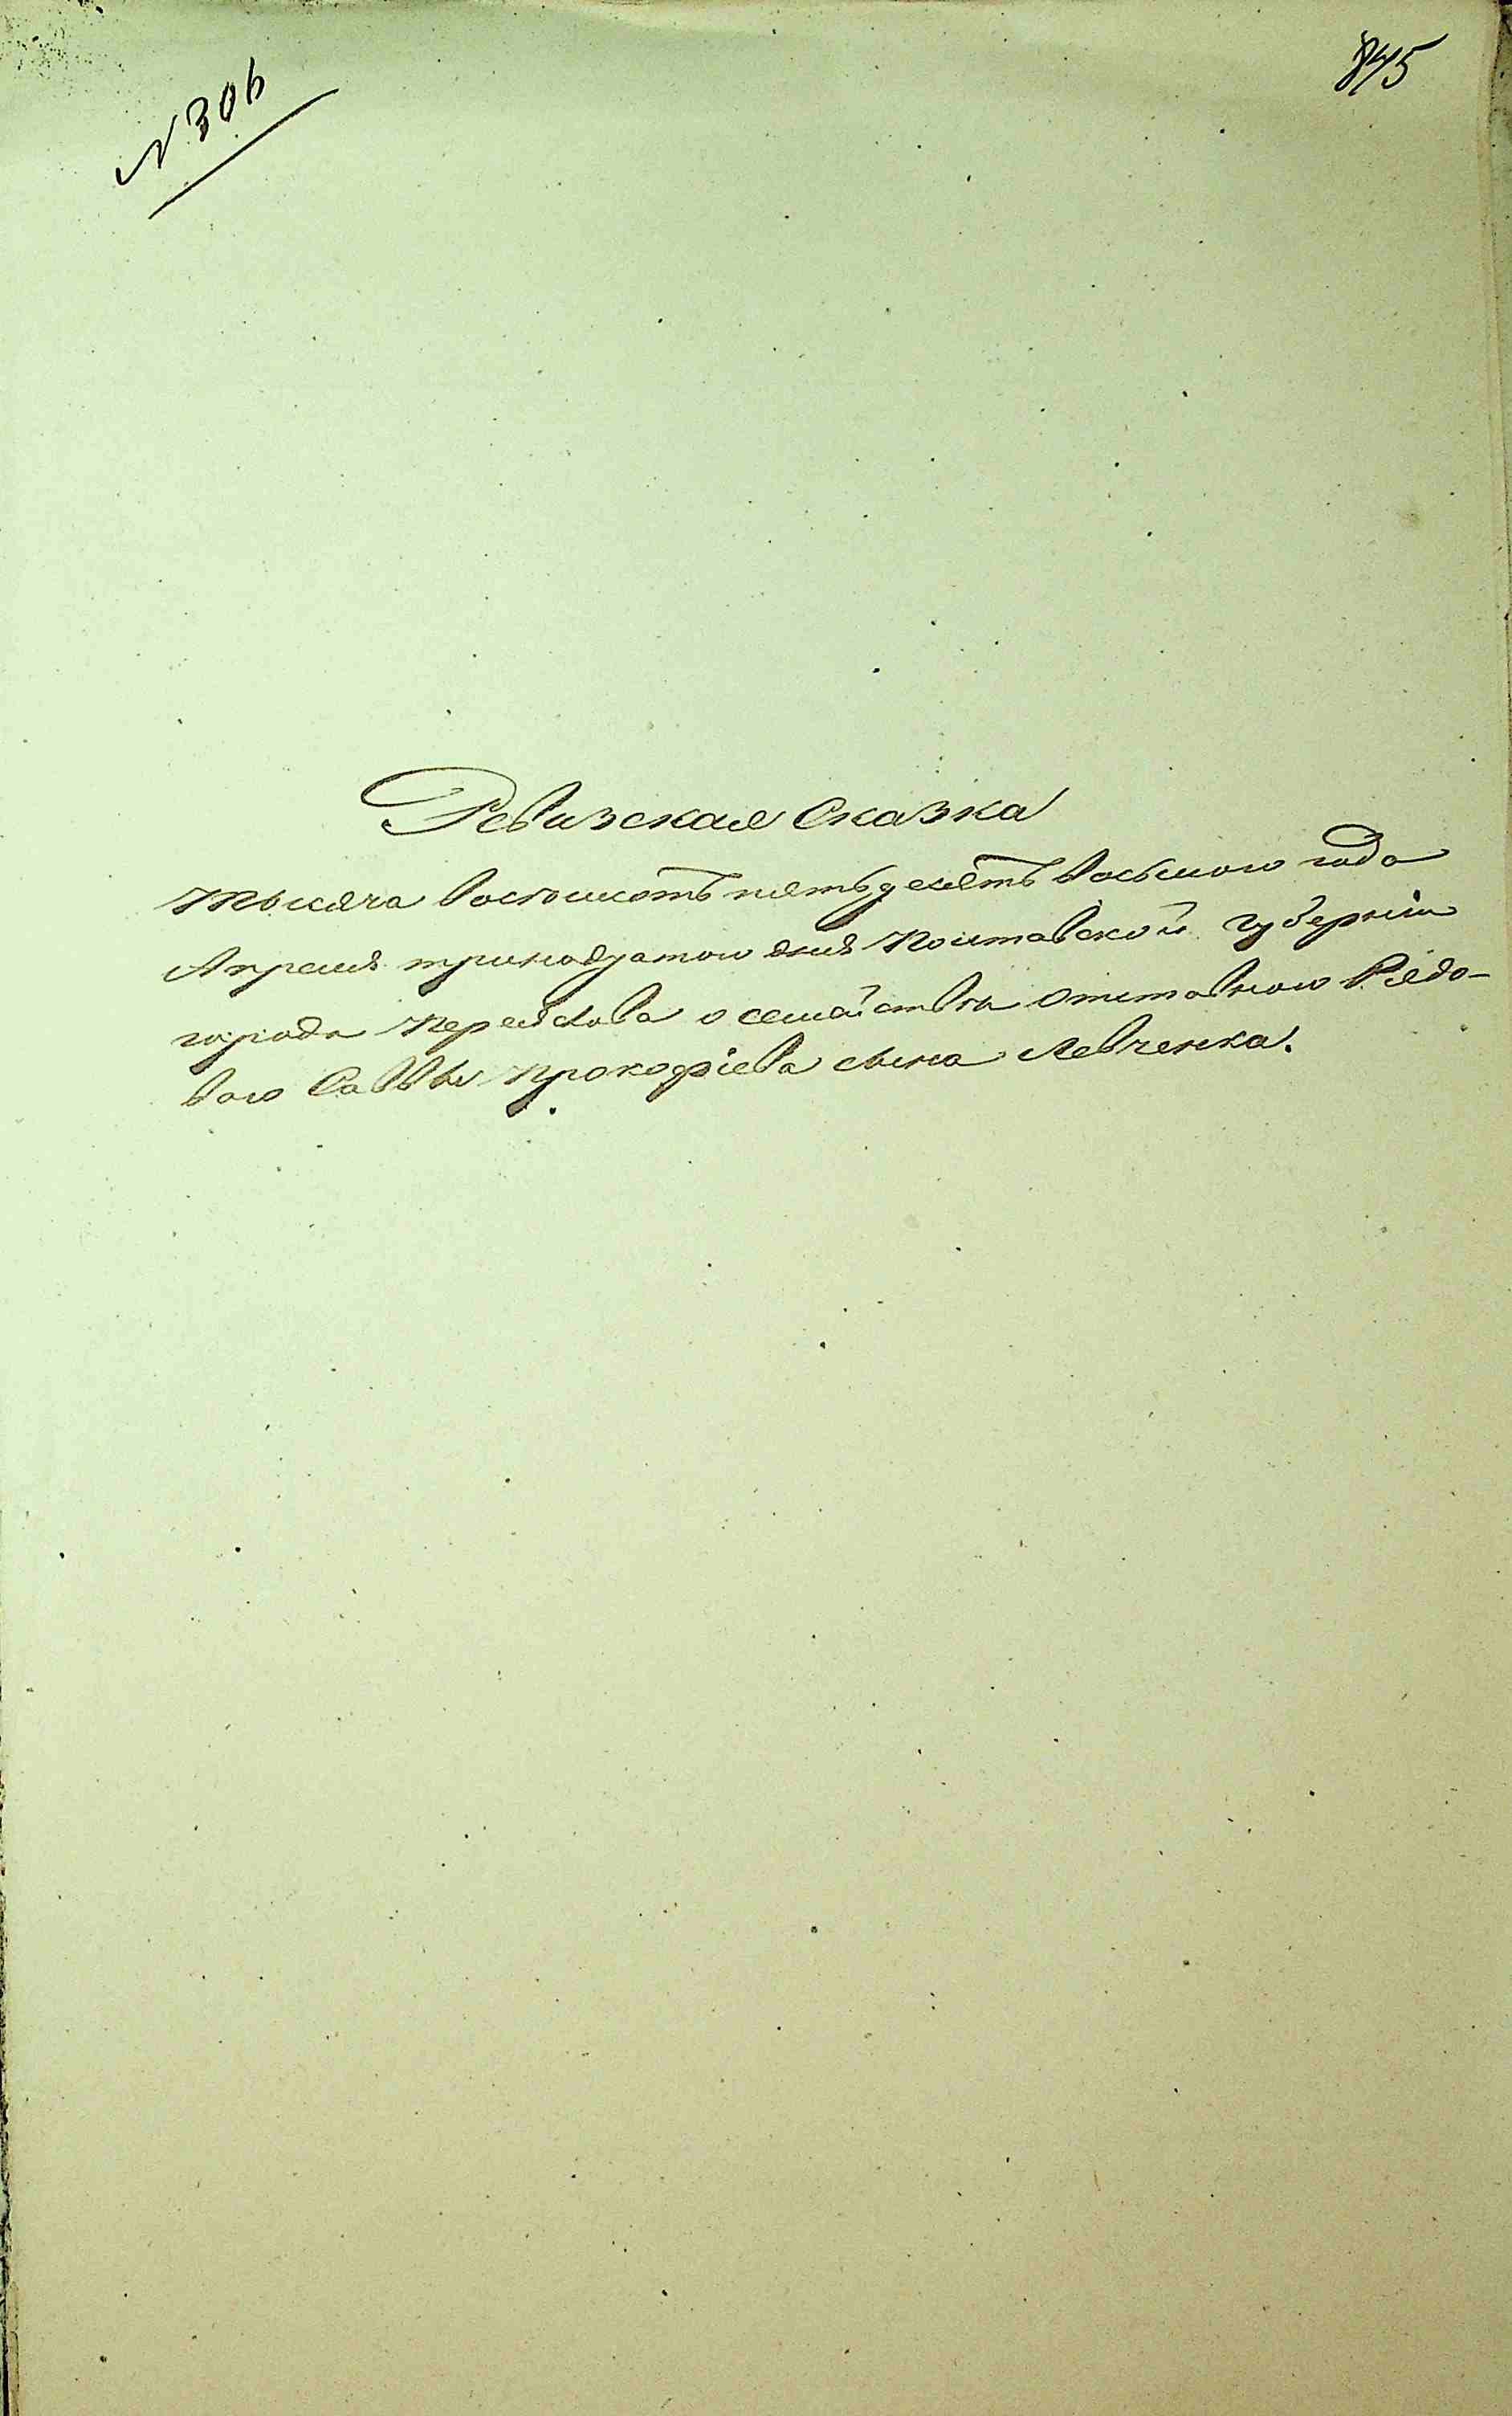 N 306
845
Ревизская Сказка
Тысяча восемьсотъ пятьдесятъ восьмого года
Апреля тринадцатого дня Полтавской губерніи
города Переяслова о семействѣ отставного Рядо-
вого Саввы Прокофіева сына Левченка.